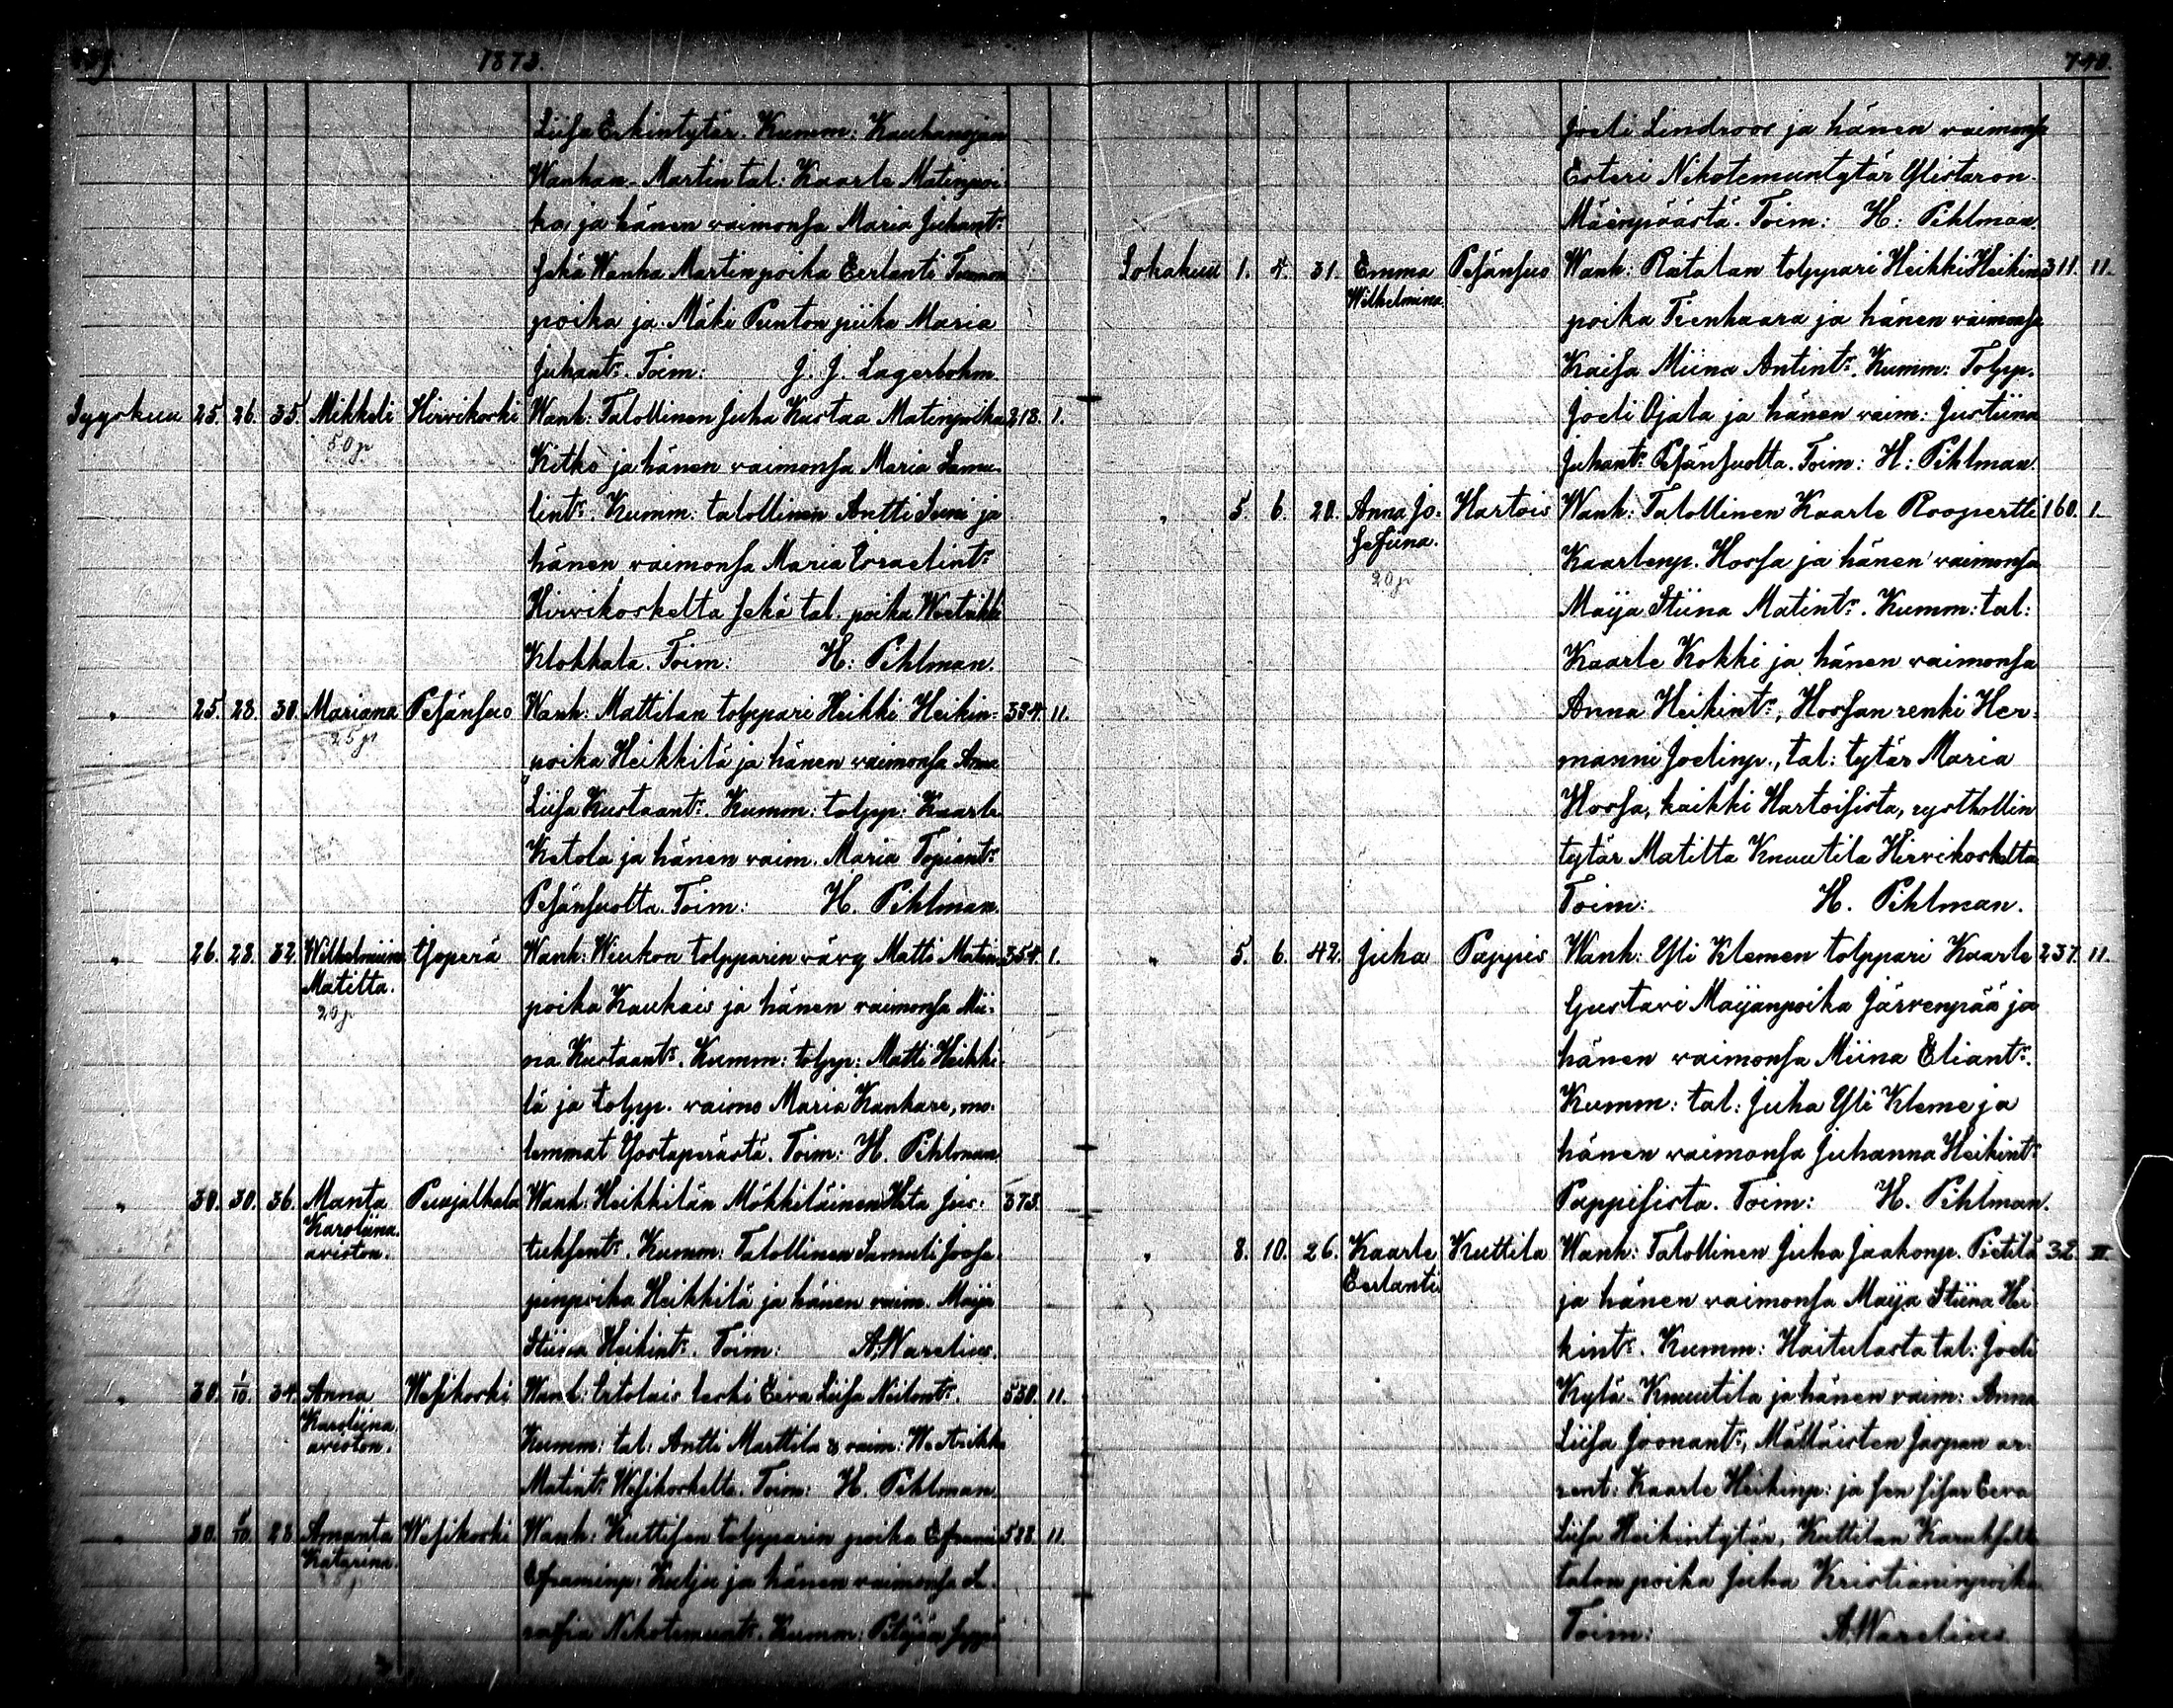 1873.
Liisa Erkintytär. Kumm: Kauhanojan
Wanhan-Martin tal: Kaarle Matinpoi-
ka ja hänen vaimonsa Maria Juhant:
sekä Wanha Martinpoika Eerlanti Tuomon
poika ja Mäki Punton piika Maria
Juhant: Toim: J. J. Lagerbohm.
Syyskuu 25. 26. 35. Mikkeli Hirvikoski Wanh: Talollinen Juha Kustaa Matinpoika 218. 1.
50 p
Kitko ja hänen vaimonsa Maria Samu-
lint: Kumm: talollinen Antti Suni ja
hänen vaimonsa Maria Israelint:
Hirvikoskelta sekä tal. poika Wretrikki
Klokkala. Toim: H: Pihlman.
" 25. 28. 30. Mariana Pesänsuo Wanh: Mattilan tolppari Heikki Heikin- 334. 11.
25 p
poika Heikkilä ja hänen vaimonsa Anna
Liisa Kustaant: Kumm: tolpp: Kaarle
Ketola ja hänen vaim. Maria Topiant:
Pesänsuolta. Toim: H. Pihlman.
" 26. 28. 32. Wilhelmiina Yöperä Wanh: Wiukon tolpparin vävy Matti Matin 354. 1.
Matilta.
20 p
poika Kaukais ja hänen vaimonsa Mii-
na Kustaant: Kumm: tolpp: Matti Heikki-
lä ja tolpp. vaimo Maria Kankare, mo-
lemmat Yöstaperästä. Toim: H. Pihlman
" 30. 30. 36. Manta Puujalkala Wanh: Heikkilän Mökkiläinen Heta Jus- 373.
Karoliina.
avioton.
tuksent: Kumm: Talollinen Samuli Joose-
pinpoika Heikkilä ja hänen vaim. Maija
Stiina Heikint: Toim: A. Warelius.
" 30. 1/10. 34. Anna Wesikoski Wanh: Irtolais leski Eeva Liisa Niilont: 530. 11.
Karoliina
avioton.
Kumm: tal: Antti Marttila & vaim: Wretrikka
Matint: Wesikoskelta. Toim: H. Pihlman.
" 30. 6/10. 28. Amanta Wesikoski Wanh: Kuttisen tolpparin poika Eframi 588. 11.
Katarina.
Eframinp: Kulju ja hänen vaimonsa Se-
rafia Nikotemunt: Kumm:
740.
Joeli Lindroos ja hänen vaimonsa
Esteri Nikotemuntytär Ylistaron
Mäenpäästä. Toim: H: Pihlman.
Lokakuu 1. 4. 31. Emma Pesänsuo Wanh: Ratalan tolppari Heikki Heikin 311. 11.
Wilhelmina.
poika Tienhaara ja hänen vaimonsa
Kaisa Miina Antint: Kumm: Tolpp.
Joeli Ojala ja hänen vaim: Justiina
Juhant: Pesänsuolta. Toim: H: Pihlman.
" 5. 6. 20. Anna Jo- Hartois Wanh: Talollinen Kaarle Roopertti 160. 1.
sefiina.
20 p
Kaarlenp. Hossa ja hänen vaimonsa
Maija Stiina Matint: Kumm: tal:
Kaarle Kokki ja hänen vaimonsa
Anna Heikint:, Hossan renki Her-
manni Joelinp., tal: tytär Maria
Hossa, kaikki Hartoisista, rysthollin
tytär Matilta Knuutila Hirvikoskelta
Toim: H. Pihlman.
" 5. 6. 42. Juha Pappis Wanh: Yli Klemen tolppari Kaarle 237. 11.
Gustavi Maijanpoika Järvenpää ja
hänen vaimonsa Miina Eliant:
Kumm: tal: Juha Yli Kleme ja
hänen vaimonsa Juhanna Heikint:
Pappisista. Toim: H. Pihlman.
" 8. 10. 26. Kaarle Kuttila Wanh: Talollinen Juha Jaakonp. Pietilä 32. III.
Eerlanti
ja hänen vaimonsa Maija Stiina Hei-
kint: Kumm: Haitulasta tal: Joeli
Kylä-Knuutila ja hänen vaim: Anna
Liisa Joonant:, Mälläisten Jaspan ar-
rent: Kaarle Heikinp: ja sen sisar Eeva
Liisa Heikintytär, Kuttilan Karukselta
talon poika Juha Kristianinpoika.
Toim: A. Warelius